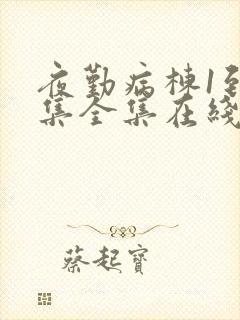 夜勤病栋1到
集全集在线
蔡起寶